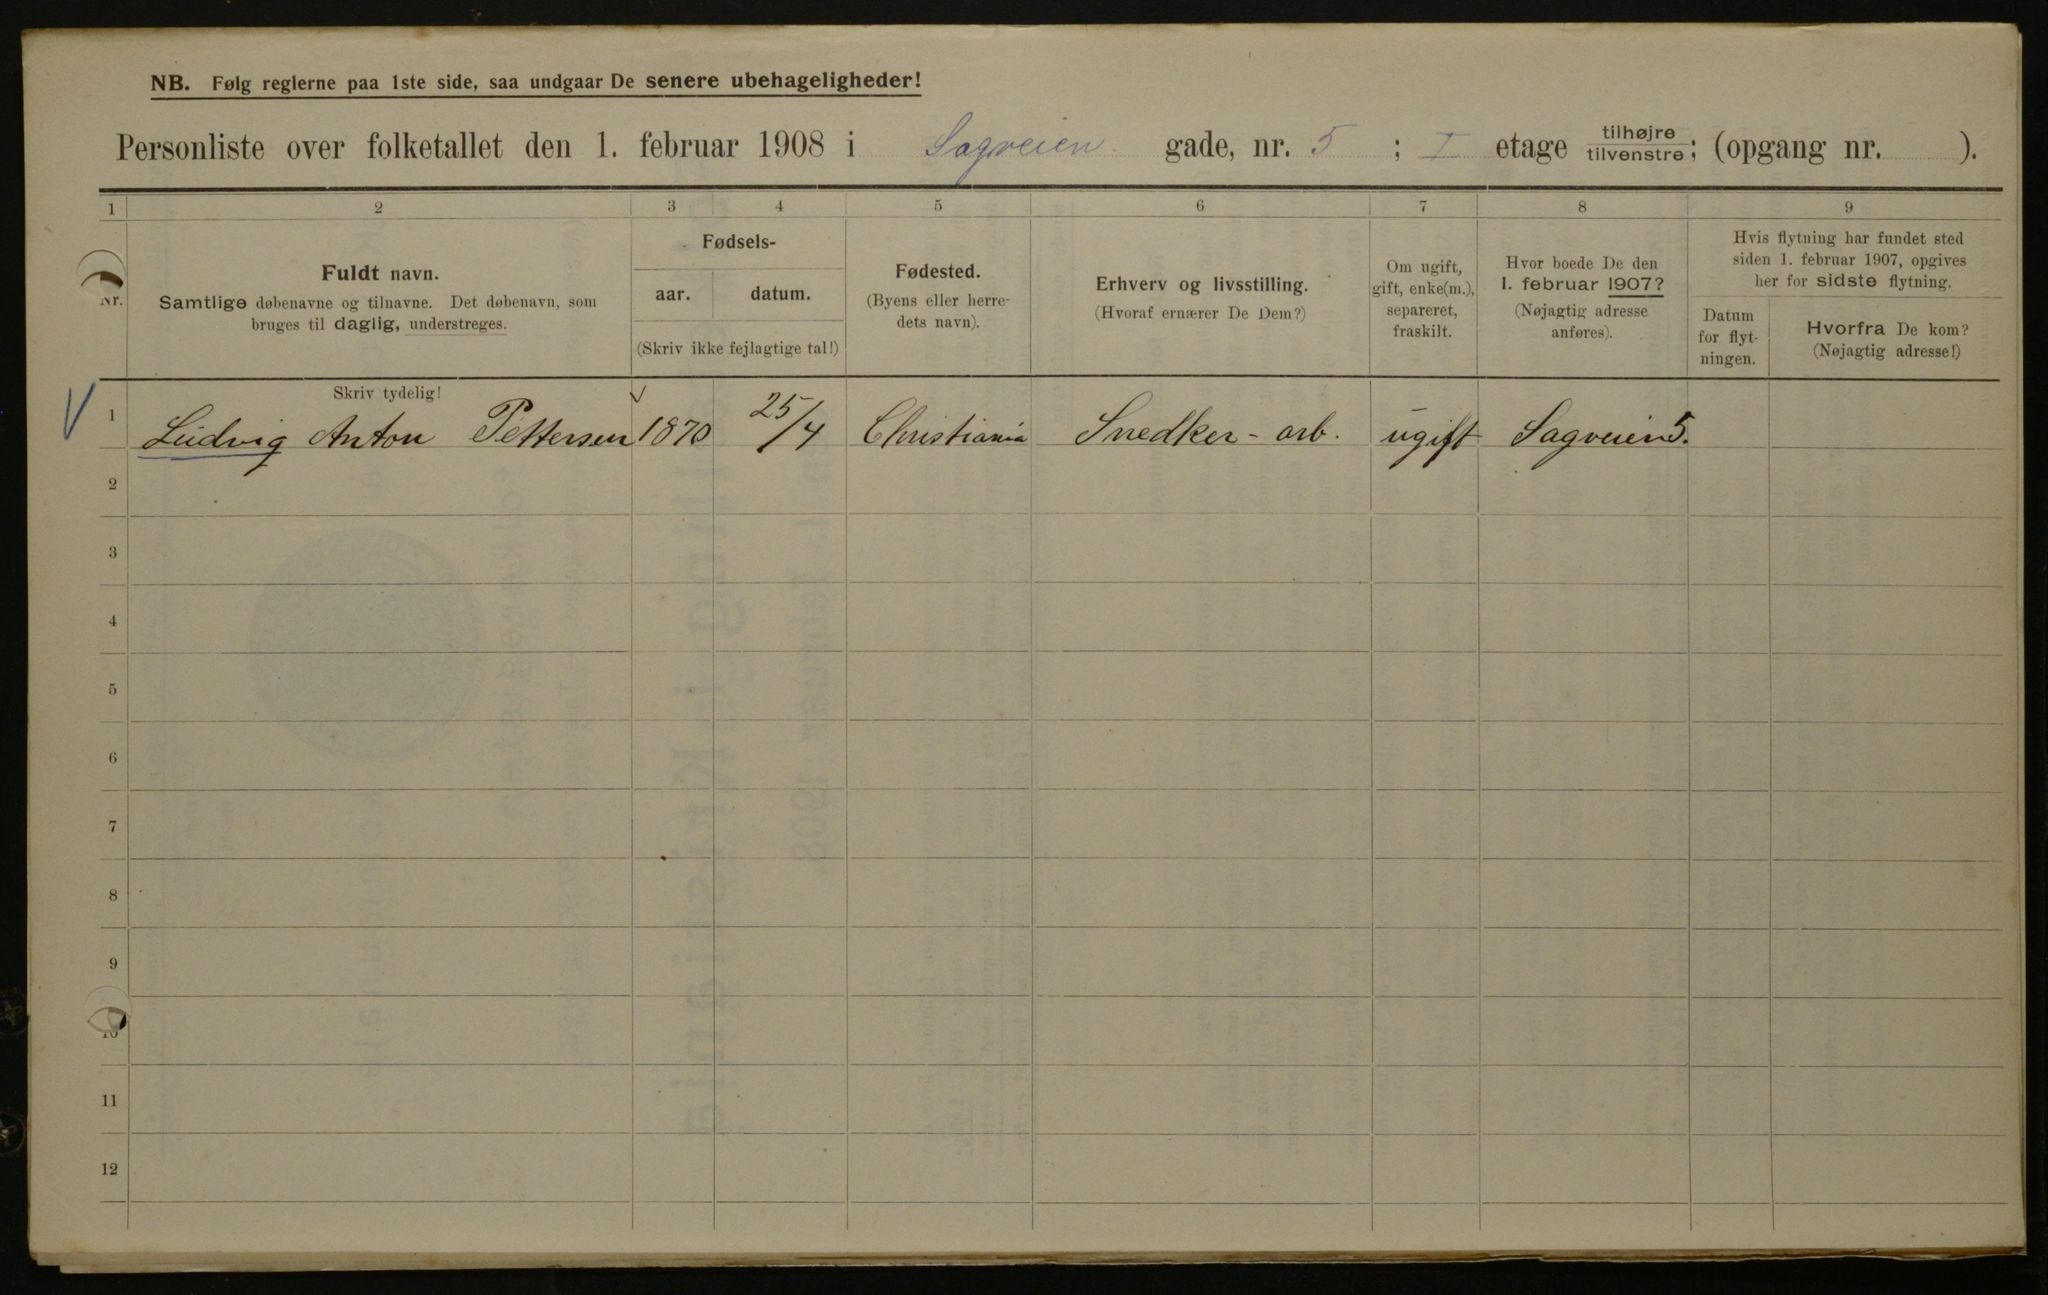 NB. Følg reglerne paa 1ste side, saa undgaar De senere ubehageligheder!
Personliste over folketallet den 1. februar 1908 i Sagveien gade, nr. 5 ; I etage tilhøjre tilvenstre; (opgang nr. ).
1 2 3 4 5 6 7 8 9
Nr.
Fuldt navn.
Samtlige døbenavne og tilnavne. Det døbenavn, som
bruges til daglig, understreges.
Fødsels-
aar. datum.
(Skriv ikke fejlagtige tal!)
Fødested.
(Byens eller herre-
dets navn).
Erhverv og livsstilling.
(Hvoraf ernærer De Dem?)
Om ugift,
gift, enke(m.),
separeret,
fraskilt.
Hvor boede De den
1. februar 1907?
(Nøjagtig adresse
anføres).
Hvis flytning har fundet sted
siden 1. februar 1907, opgives
her for sidste flytning.
Datum
for flyt-
ningen.
Hvorfra De kom?
(Nøjagtig adresse!)
Skriv tydelig!
1 Ludvig Anton Pettersen 1870 25/4 Christiania Snedker-arb. ugift Sagveien 5.
2
3
4
5
6
7
8
9
10
11
12